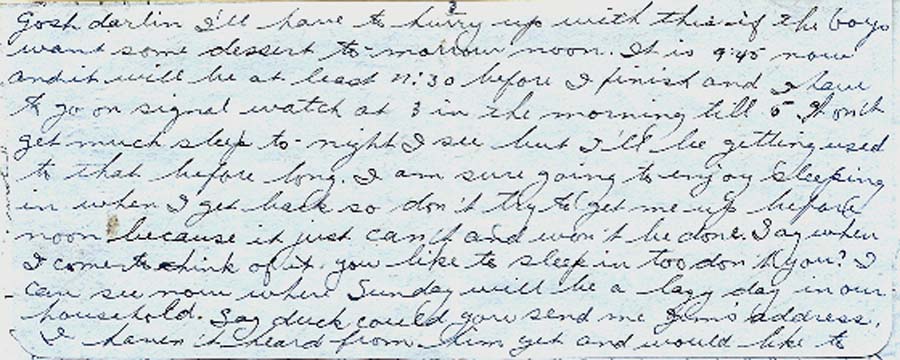 3
Gosh darlin I'll have to hurry up with this if the boys
want some dessert to-morrow noon. It is 9:45 now
and it will be at least 11:30 before I finish and I have
to go on signal watch at 3 in the morning till 5. I won't
get much sleep to-night I see but I'll be getting used
to that before long. I am sure going to enjoy sleeping
in when I get back so don't try to get me up before
noon because it just can't and won't be done. Say when
I come to think of it you like to sleep in too don't you? I
can see now where Sunday will be a lazy day in our
household. Say duck could you send me Jim's address.
I haven't heard from him yet and would like to